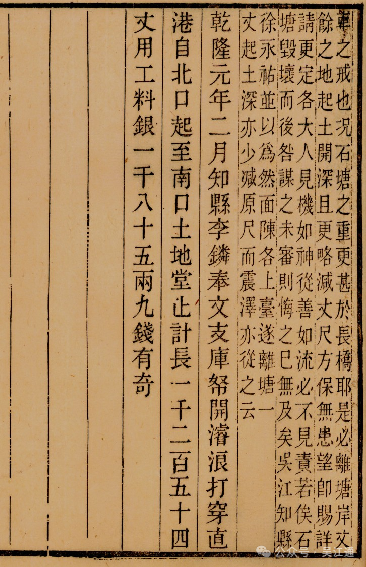 車之戒也况石塘之重更甚於長橋耶是必離塘岸丈
餘之地起土開深且更略減丈尺方保無患望卽賜詳
請更定各大人見機如神從善如流必不見責若俟石
塘毀壞而後咎謀之未審則悔之已無及矣吳江知縣
徐永祐並以爲然面陳各上臺遂離塘一
丈起土深亦少減原尺而震澤亦從之云
乾隆元年二月知縣李鏻奉文支庫帑開濬浪打穿直
港自北口起至南口土地堂止計長一千二百五十四
丈用工料銀一千八十五兩九錢有奇
公众号·吴江通